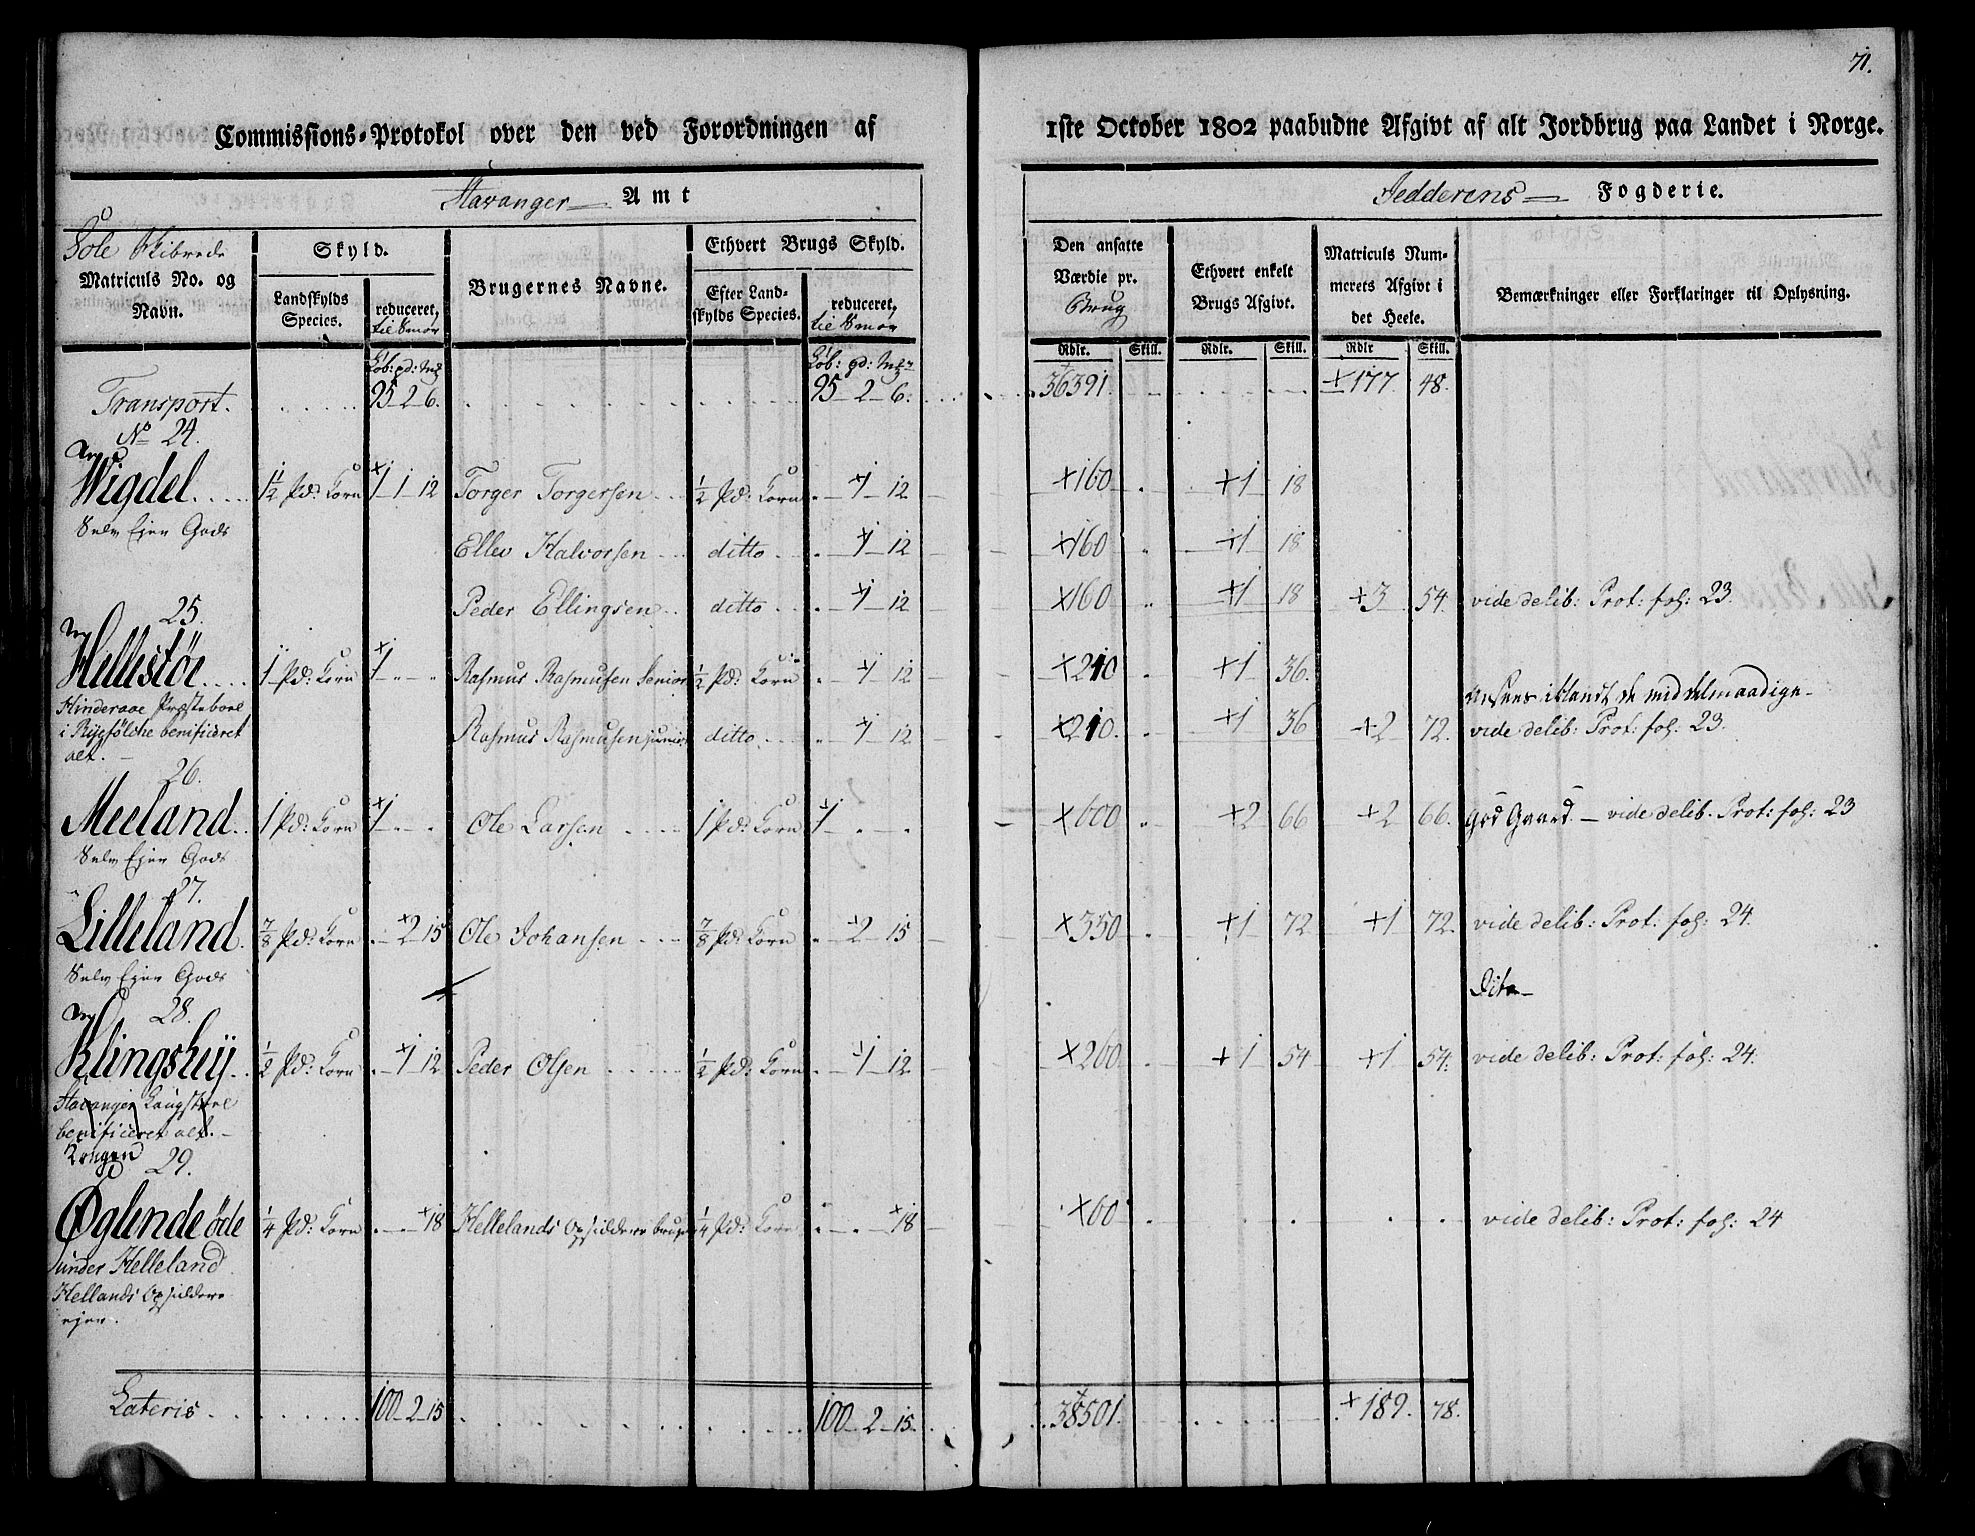 71.
Commissions-Protokol over den ved Forordningen af 1ste October 1802 paabudne Afgivt af alt Jordbrug paa Landet i Norge.
Stavanger Amt
Jedderens Fogderie.
Sole Skibrede
Matriculs No. og Navn.
Skyld.
Landskylds Species.
reduceret, til Smør
Brugernes Navne.
Ethvert Brugs Skyld.
Efter Landskylds Species.
reduceret, til Smør
Den ansatte Værdie pr. Brug
Ethvert enkelt Brugs Afgivt.
Matriculs Nummerets Afgivt i det Heele.
Bemærkninger eller Forklaringer til Oplysning.
Løb: pd: Mk Løb: pd: Mk Rdlr. Skill. Rdlr. Skill. Rdlr Skill.
Transport. 95 2 6. 95 - 2 - 6. 36391. + 177 48.
No 24.
Wigdel 1 1/2 Pd: Korn +1 - 1 12 Torger Torgersen 1/2 Pd: Korn . - +1 - 12 +160 +1 18
Selv Ejer Gods
Ellev Halvorsen ditto . - +1 - 12 +160 +1 18
Peder Ellingsen ditto . - +1 - 12 +160 +1 18 +3 54. vide delib: Prot: fol: 23.
25.
Hellestøe 1 Pd: Korn +1 Rasmus Rasmusen Senior 1/2 Pd: Korn . - +1 - 12 +210 +1 36.
Hinderaae Præsteboel
i Ryefølche benificeret
alt.
Rasmus Rasmusen junior ditto . - +1 - 12 +210. +1 36 +2 72. vide delib: Prot: fol: 23.
26.
Meeland 1 Pd: Korn +1 Ole Larsen 1 Pd: Korn +1 +600 +2 66 +2 66. god Gaard. - vide delib. Prot: fol: 23
Selv Ejer Gods
27.
Lilleland 7/8 Pd: Korn . +2 15 Ole Johansen 7/8 Pd: Korn . +2 - 15 +350 +1 72 +1 72. vide delib: Prot: fol: 24.
Selv Ejer Gods
Dito
28.
Klingsheij 1/2 Pd: Korn . +1 12 Peder Olsen 1/2 Pd: Korn . +1 - 12 +260 +1 54 +1 54. vide delib: Prot: fol: 24.
Stavanger Laugstoel
benificeret alt.
Kongen
29.
Øglende øde 1/4 Pd: Korn +18 Hellelands Opsiddere bruger 1/4 Pd: Korn +18 +60 vide delib: Prot: fol: 24
under Helleland
Hellands Opsiddere
ejer.
Lateris 100 - 2 - 15 100 - 2 - 15. 38501. + 189. 78.